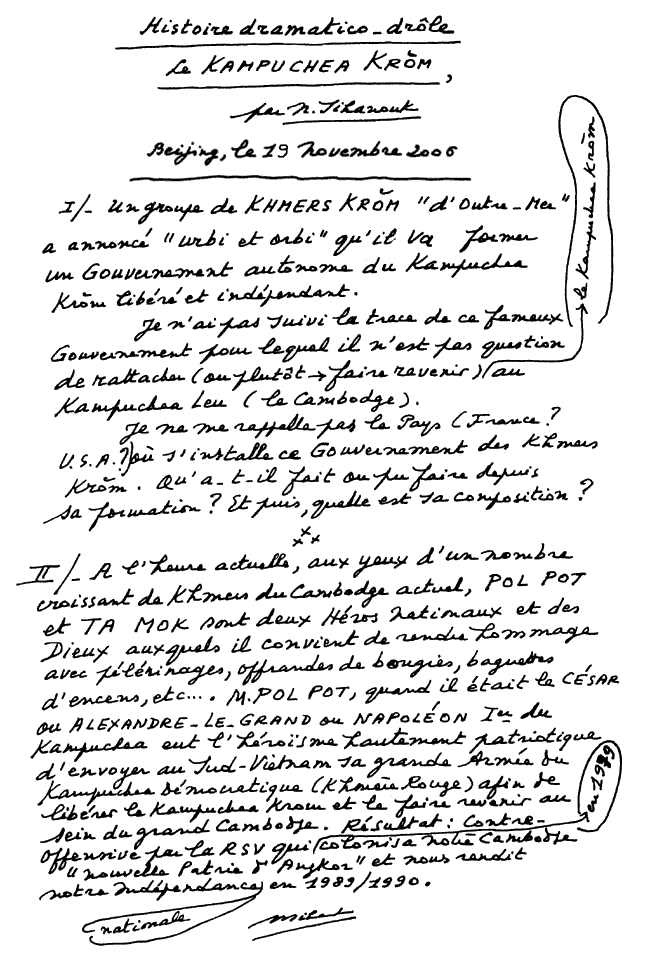 Histoire dramatico-drôle
Le KAMPUCHEA KRŎM,
par N. Sihanouk
Beijing, le 19 Novembre 2006
I/- Un groupe de KHMERS KRŎM "d'Outre-Mer"
a annoncé "urbi et orbi" qu'il va former
un Gouvernement autonome du Kampuchea
Krŏm libéré et indépendant.
Je n'ai pas suivi la trace de ce fameux
Gouvernement pour lequel il n'est pas question
de rattacher (ou plutôt → faire revenir) (au
le Kampuchea Krŏm
Kampuchea Leu (le Cambodge).
Je ne me rappelle pas le Pays (France ?
U.S.A. ?) où s'installe ce Gouvernement des Khmers
Krŏm. Qu'a-t-il fait ou pu faire depuis
sa formation ? Et puis, quelle est sa composition ?
x x x
II/- A l'heure actuelle, aux yeux d'un nombre
croissant de Khmers du Cambodge actuel, POL POT
et TA MOK sont deux Héros nationaux et des
Dieux auxquels il convient de rendre hommage
avec pélérinages, offrandes de bougies, baguettes
d'encens, etc.... M. POL POT, quand il était le CÉSAR
ou ALEXANDRE-LE-GRAND ou NAPOLÉON Ier du
Kampuchea eut l'héroïsme hautement patriotique
d'envoyer au Sud-Vietnam sa grande Armée du
Kampuchea Démocratique (Khmère Rouge) afin de
libérer le Kampuchea Krom et le faire revenir au
sein du grand Cambodge. Résultat : Contre-
en 1979
offensive par la RSV qui (colonisa notre Cambodge
"nouvelle Patrie d'Angkor" et nous rendit
notre Indépendance) en 1989/1990.
nationale